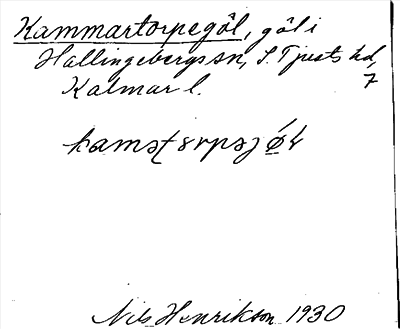 Kammartorpegöl, göl i
Hallingebergs sn, S. Tjusts hd,
Kalmar l. 7
Nils Henrikson 1930